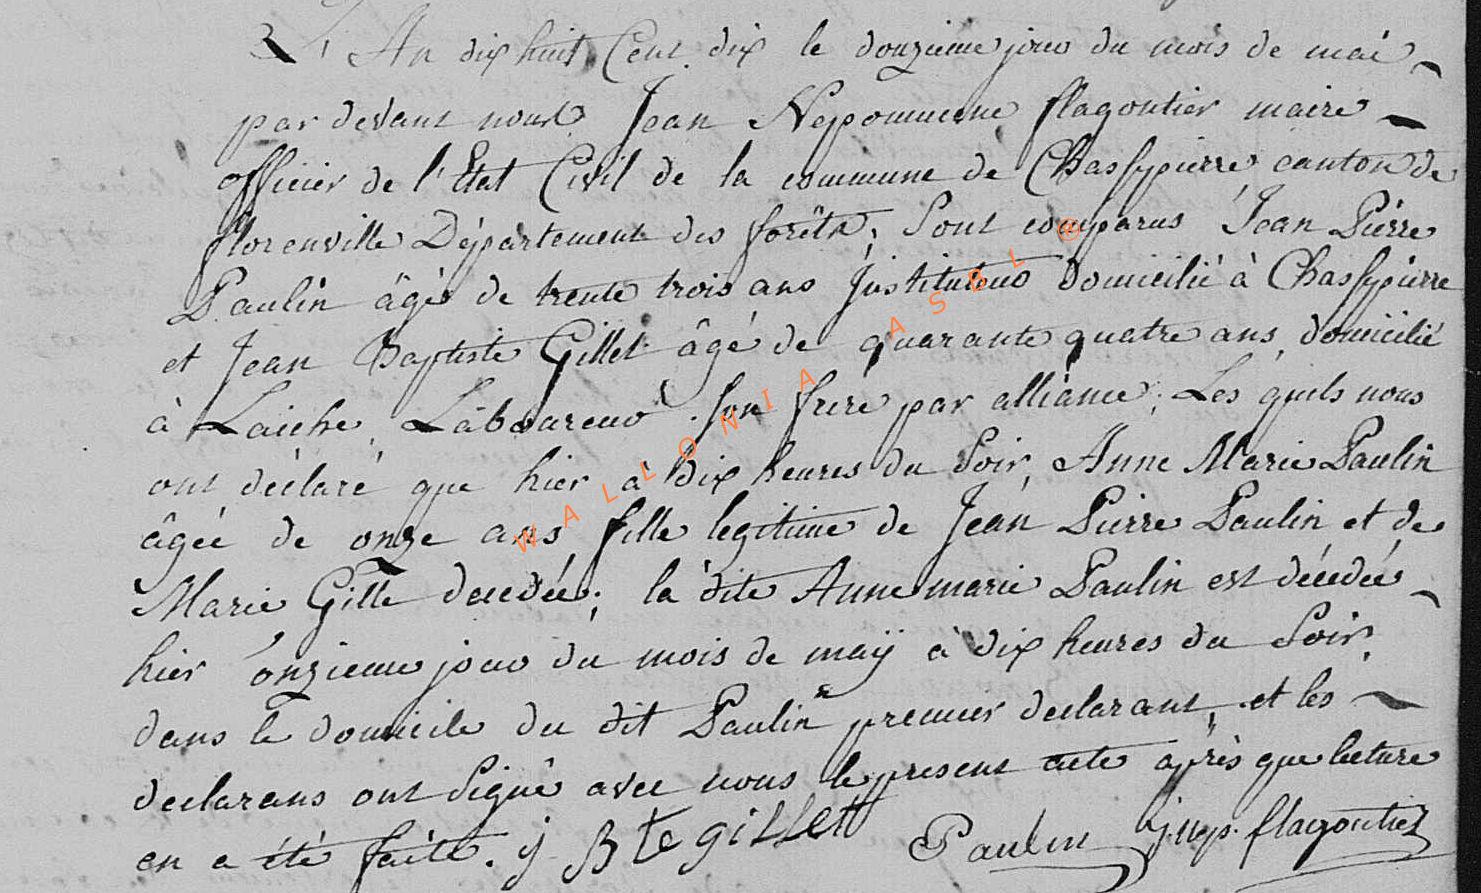 L'An dix huit Cent dix le douzieme jour du mois de mai
par devant nous Jean Nepomucene flagontier maire
officier de l'Etat Civil de la commune de Chassepierre canton de
florenville Département des forêts, Sont comparus Jean Pierre
Paulin âgé de trente trois ans Instituteur domicilié à Chassepierre
et Jean Baptiste Gillet âgé de quarante quatre ans, domicilié
à Laiche, Laboureur son frere par alliance; Les quels nous
ont déclaré que hier à dix heures du Soir, Anne Marie Paulin
âgée de onze ans, fille legitime de Jean Pierre Paulin et de
Marie Gille decedée; la dite Anne marie Paulin est décédée
hier onzieme jour du mois de maÿ à dix heures du Soir,
dans le domicile du dit Paulin premier declarant, et les
declarans ont Signé avec nous le present acte après que lecture
en a été faite. J Bte gillet Paulin j. nep. flagontier
WALLONIA ASBL ®